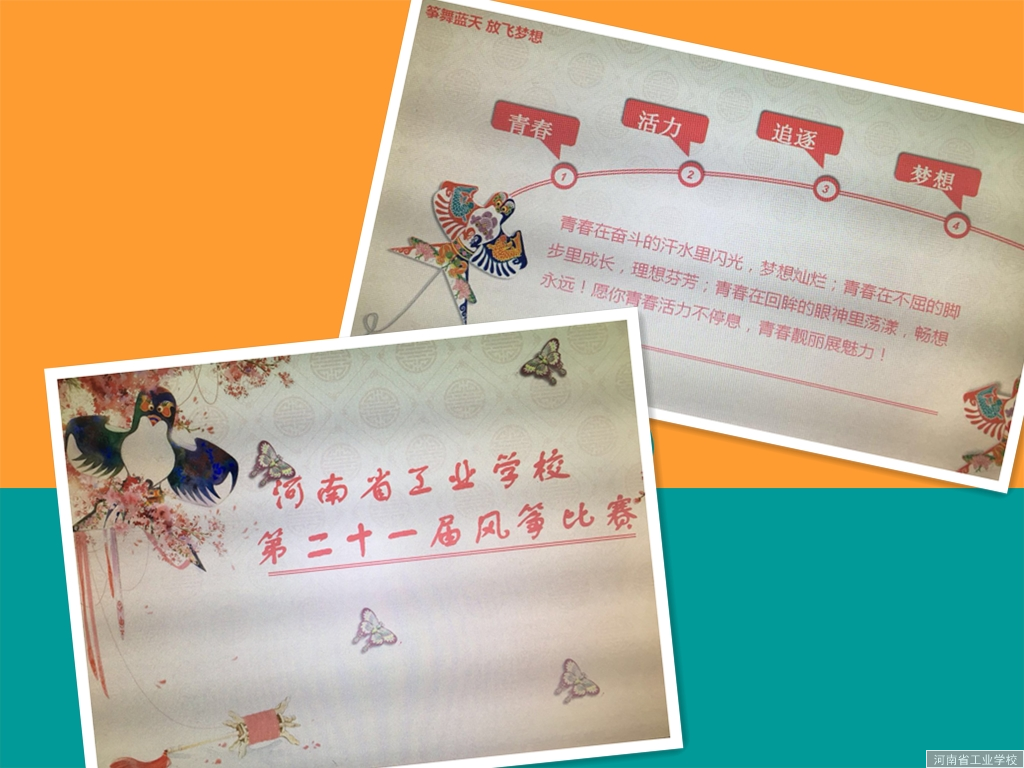 筝舞蓝天 放飞梦想
青春
活力
追逐
梦想
1
2
3
4
青春在奋斗的汗水里闪光，梦想灿烂；青春在不屈的脚
步里成长，理想芬芳；青春在回眸的眼神里荡漾，畅想
永远！愿你青春活力不停息，青春靓丽展魅力！
河南省工业学校
第二十一届风筝比赛
河南省工业学校